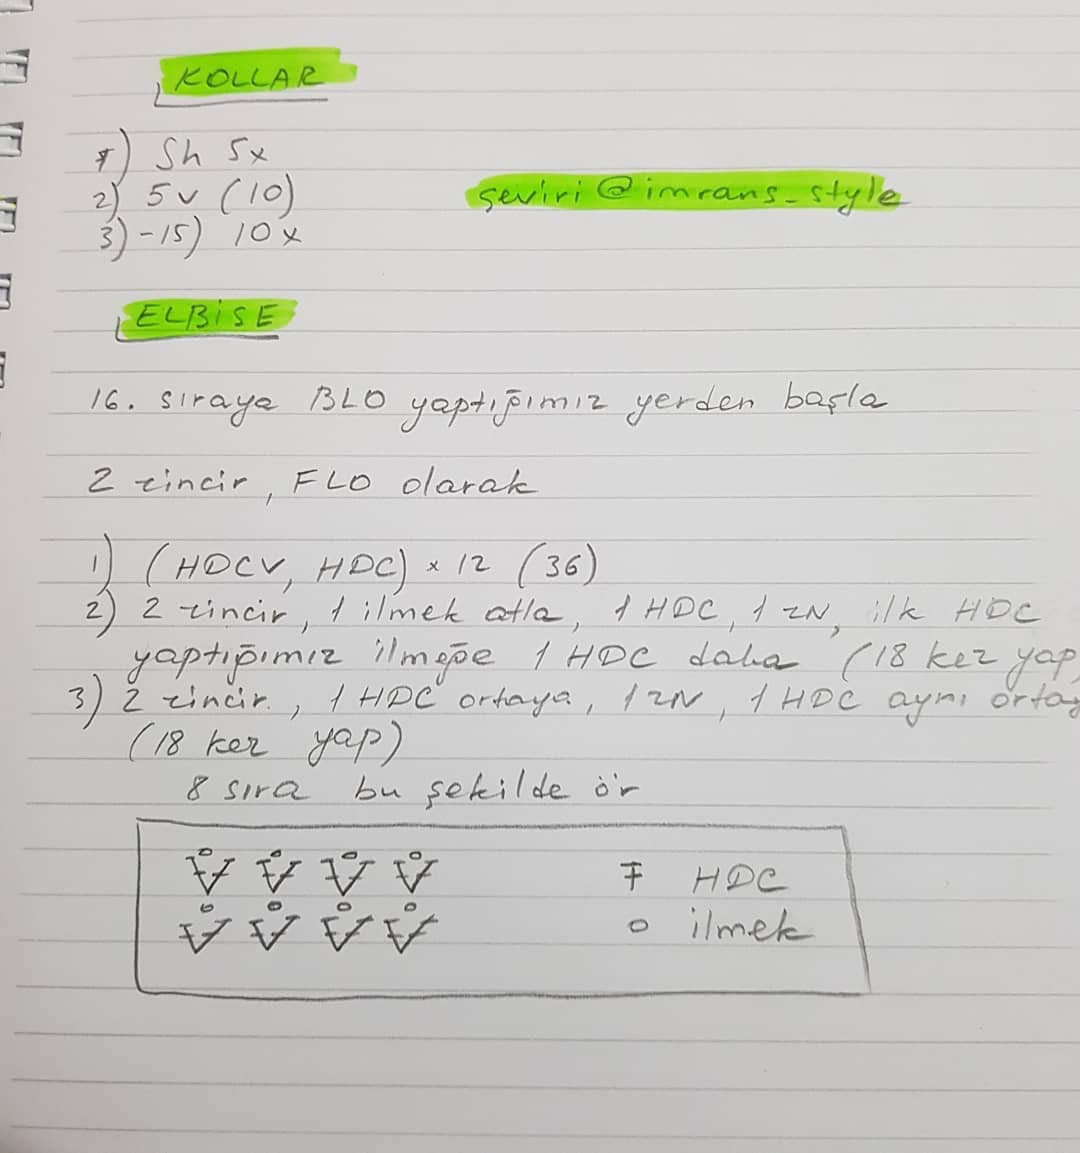 KOLLAR
1) Sh 5x
2) 5v (10)
3)-15) 10x
çeviri @imrans_style
ELBİSE
16. sıraya BLO yaptığımız yerden başla
2 zincir, FLO olarak
1) (HDCV, HDC) x 12 (36)
2) 2 zincir, 1 ilmek atla, 1 HDC, 1 ZN, ilk HDC
yaptığımız ilmeğe 1 HDC daha (18 kez yap)
3) 2 zincir, 1 HDC ortaya, 1 ZN, 1 HDC aynı ortay
(18 kez yap)
8 sıra bu şekilde ör
HDC
o ilmek